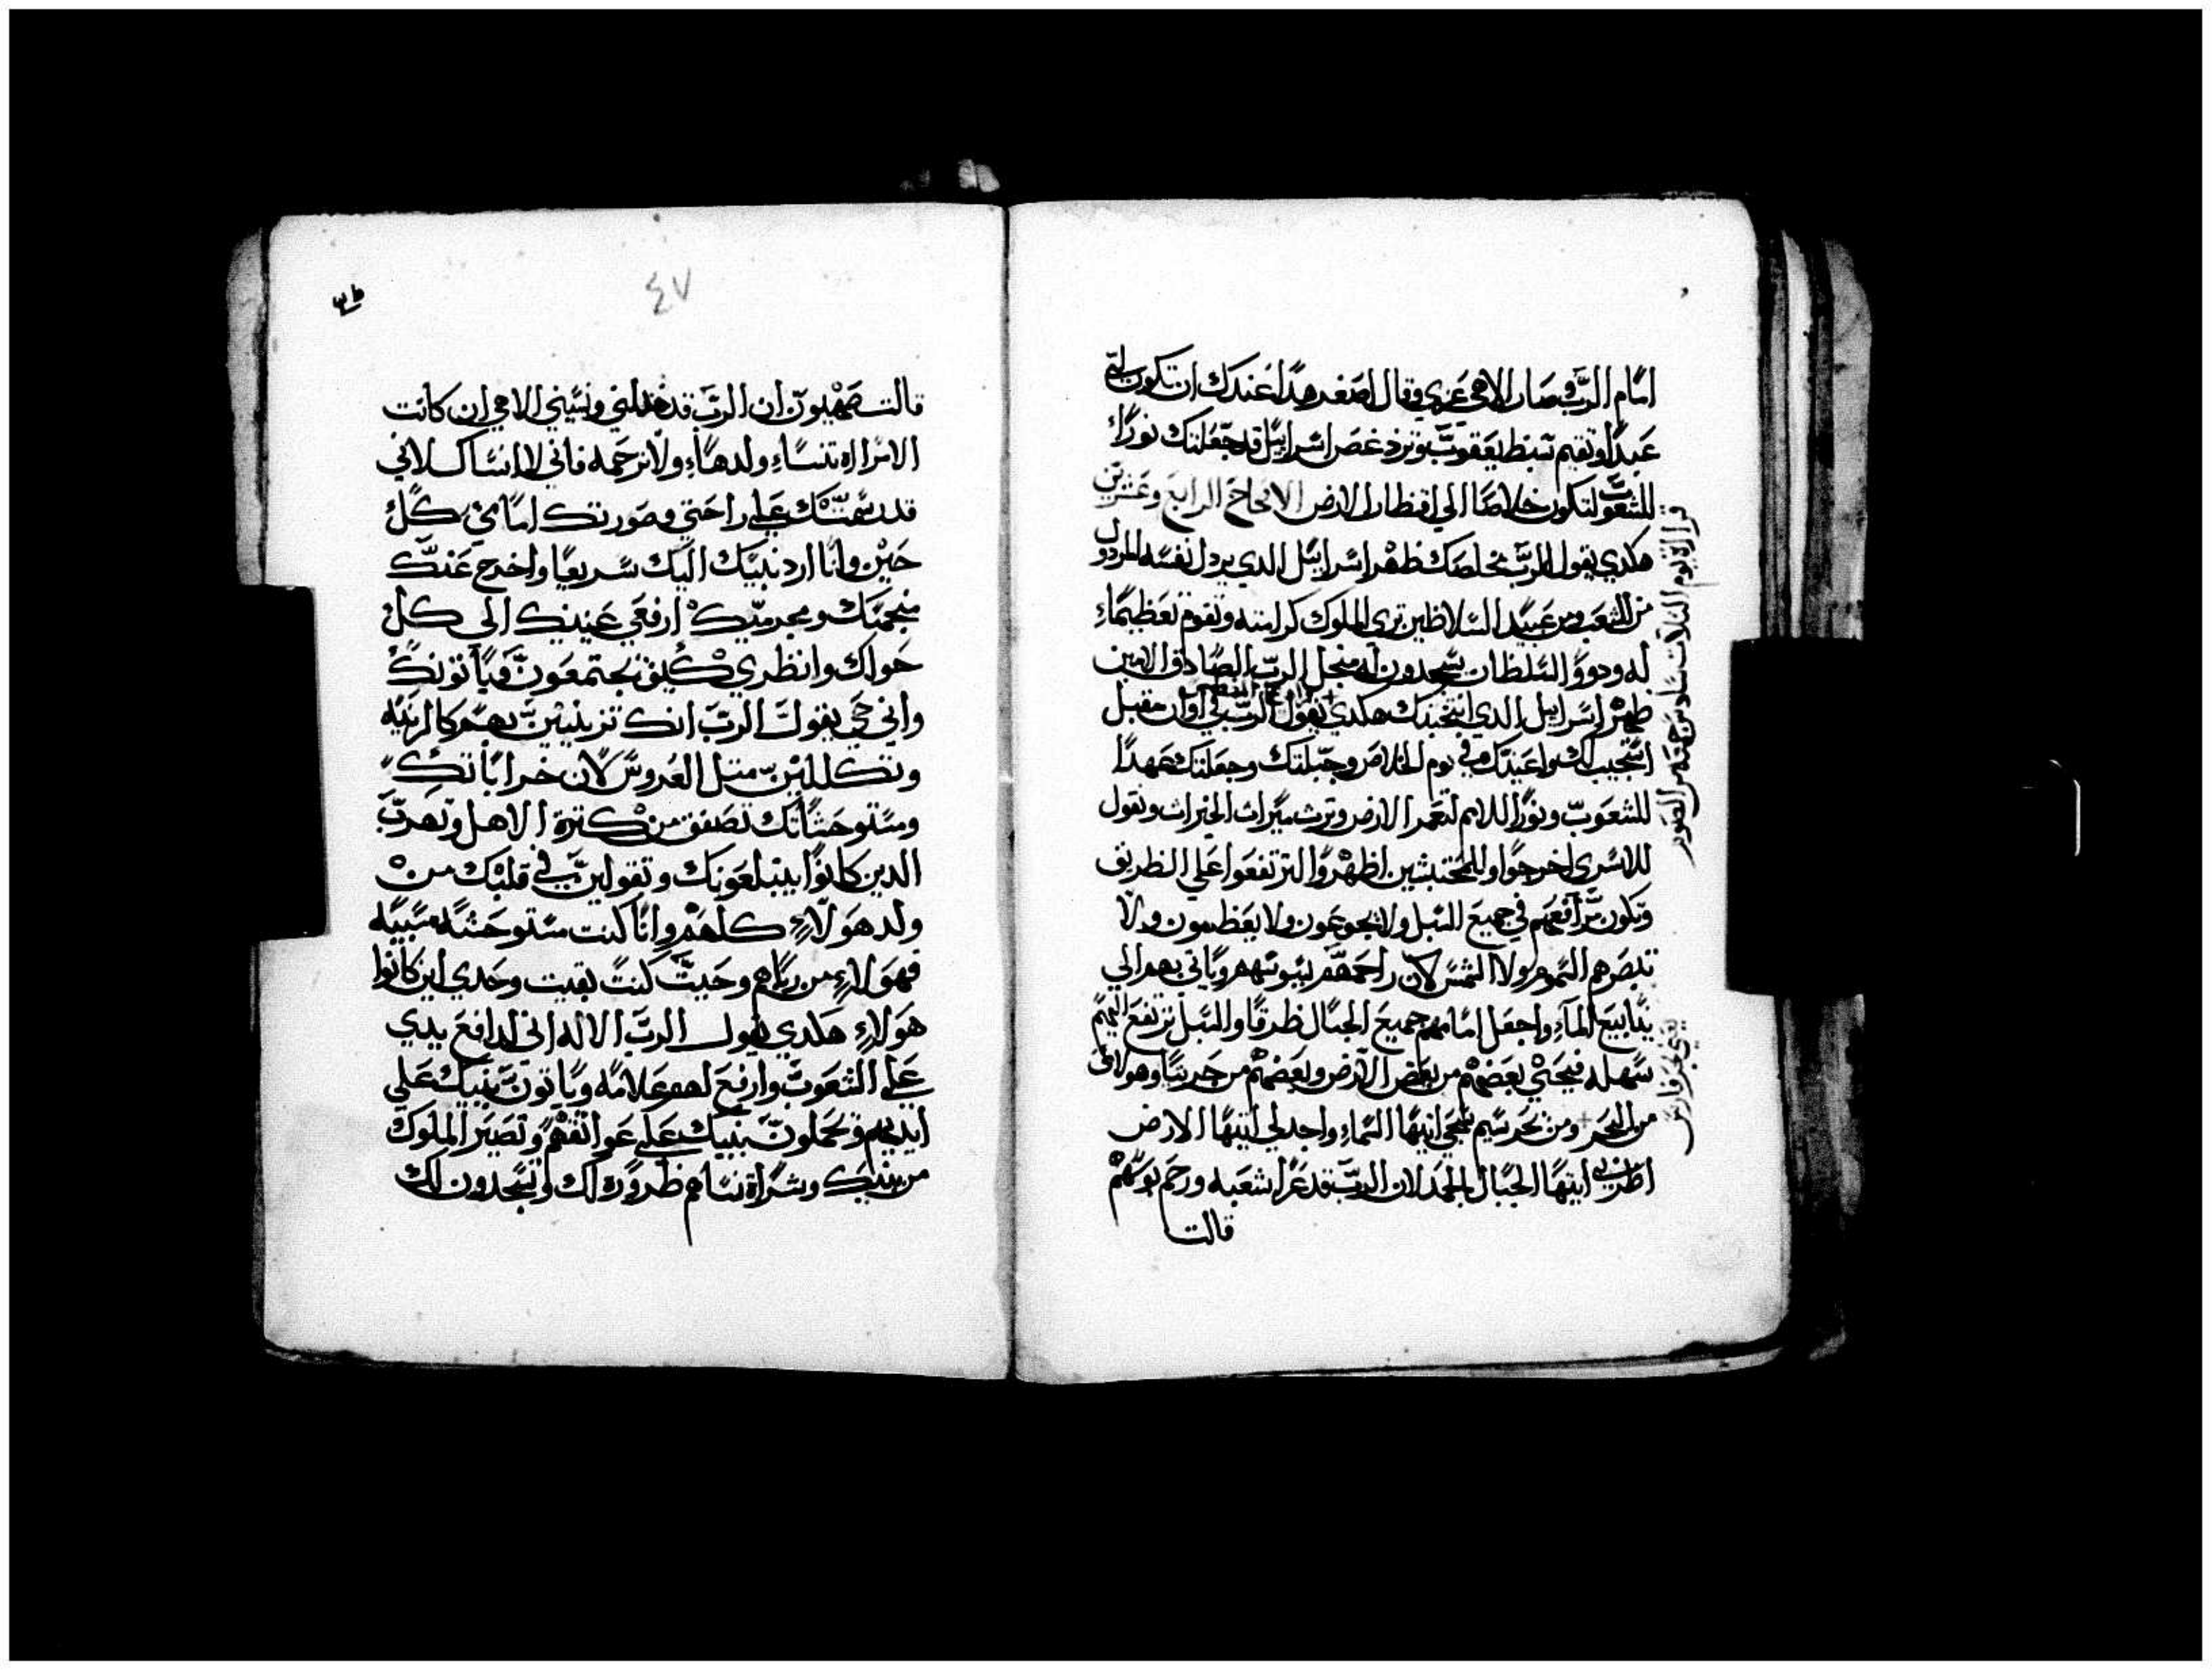 امام الرب وصار الاهي عزي وقال اصغير هدا عندك ان تكون لي
عبدا وتقيم سبط يعقوب وترد غصن اسراييل قد جعلتك نورا
للشعوب لتكون خلاصا الي اقطار الارض الاصحاح الرابع وعشرين
هكدي يقول الرب مخلصك طهر اسراييل الدي يردل نفسه المردول
من الشعب ومن عبيد السلاطين تري الملوك كرامته وتقوم تعظيما
له ودووا السلطان يسجدون له من اجل الرب الصادق الامين
طهر اسراييل الدي انتخبك هكدي يقول الرب في اوان مقبل
استجيب لك واعينك وفي يوم الخلاص وجبلتك وجعلتك عهدا
للشعوب ونورا للامم لتعمر الارض وترث ميراث الخيرات وتقول
للاسري اخرجوا وللمحتبسين اظهروا لترتفعوا علي الطريق
وتكون مرافقهم في جميع السبل ولا يجوعون ولا يعطشون ولا
تبصرهم السموم ولا الشمس لان راحمهم يسوسهم وياتي بهم الي
ينابيع الماء واجعل امامهم جميع الجبال طرقا والسبل ترتفع اليهم
سهله فيجي بعضهم من بعض الارض وبعضهم من جربيا وهولاي
من البحر ومن بحر سنيم سبحي ايتها السماء واجدلي ايتها الارض
اطربي ايتها الجبال بالحمد لان الرب قد عزا شعبه ورحم بوسهم
قالت
قراة يوم التلات سادس جمعه من الصوم
يعني بحر فارس
٤٧
قالت صهيون ان الرب قد خدلني ونسيني الاهي ان كانت
الامراه تنساء ولدها ولا ترحمه فاني لا انساك لاني
قد رسمتك علي راحتي وصورتك امامي كل
حين وانا ارد بنيك اليك سريعا واخرج عنك
منجميك ومجرميك ارفعي عينيك الي كل
حواك وانظري كيف يجتمعون وياتونك
واني حي يقول الرب انك تزينين بهم كالزينه
وتكللين متل العروس لان خراباتك
ومستوحشاتك تضيق من كترة الاهل وتهرب
الدين كانوا يبتلعونك وتقولين في قلبك من
ولد هولاء كلهم وانا كنت مستوحشه مسبيه
فهولاء من رباهم وحيث كنت بقيت وحدي اين كانوا
هولاء هكدي يقول الرب الاله اني ارافع يدي
علي الشعوب وارفع لهم علامه وياتون ببنيك علي
ايديهم ويحملون بنيك علي عواتقهم وتصير الملوك
مربييك وسراة نساهم ظروره لك ويسجدون لك